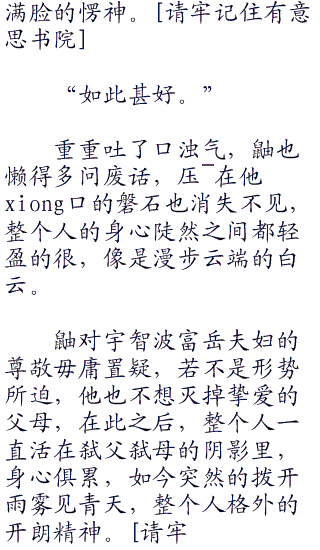 满脸的愣神。[请牢记住有意
思书院]
“如此甚好。”
重重吐了口浊气，鼬也
懒得多问废话，压¯在他
xiong口的磐石也消失不见，
整个人的身心陡然之间都轻
盈的很，像是漫步云端的白
云。
鼬对宇智波富岳夫妇的
尊敬毋庸置疑，若不是形势
所迫，他也不想灭掉挚爱的
父母，在此之后，整个人一
直活在弑父弑母的阴影里，
身心俱累，如今突然的拨开
雨雾见青天，整个人格外的
开朗精神。[请牢